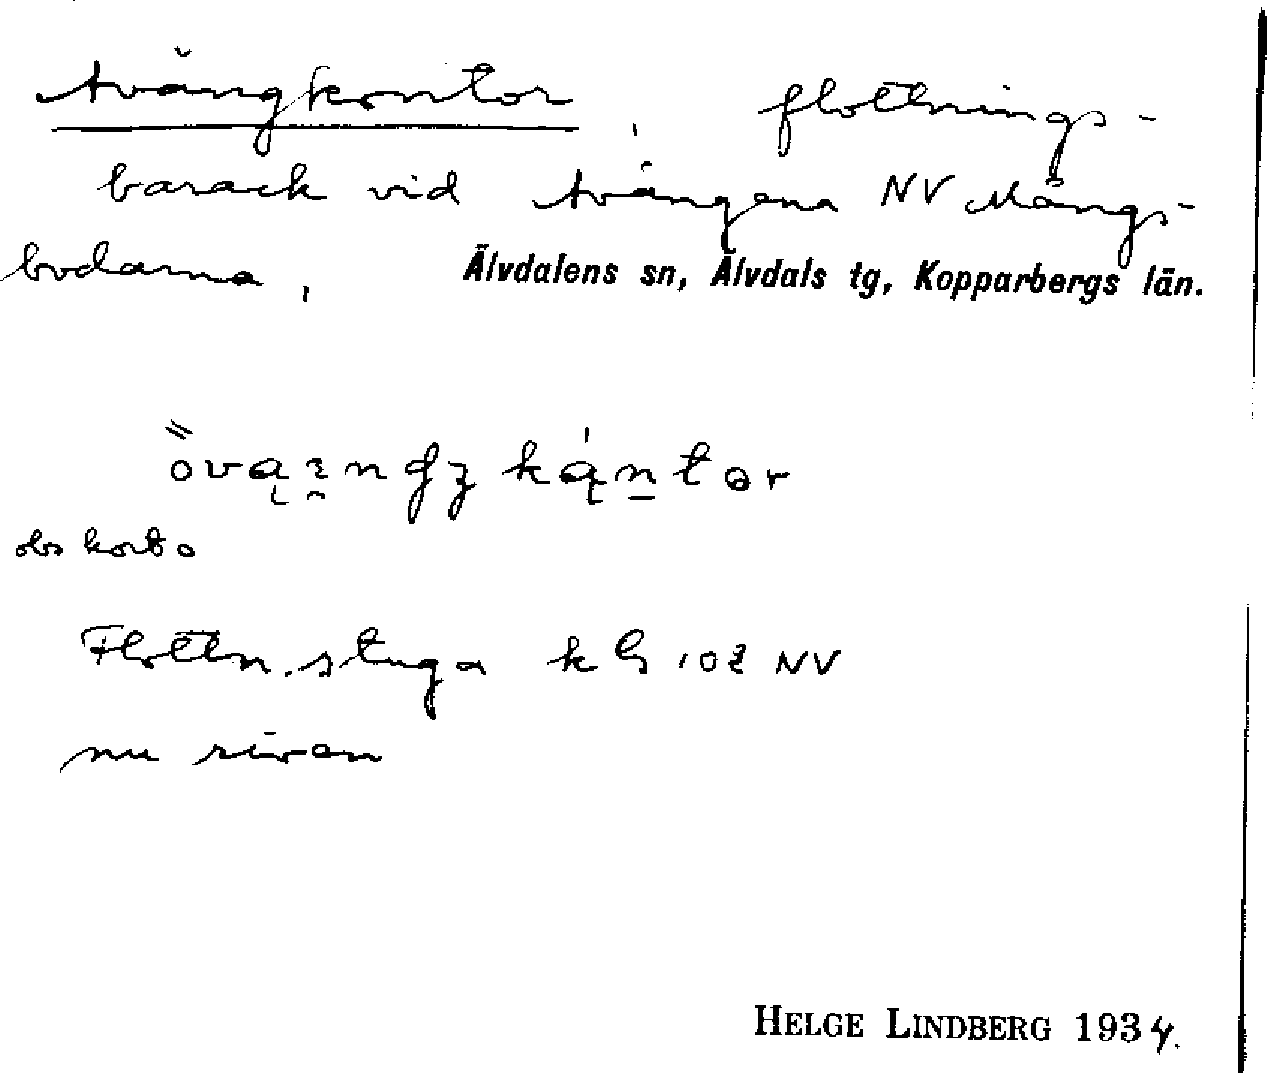 Avängkontor, flottnings-
barack vid Avängena NV Mångs-
bodarna, Älvdalens sn, Älvdals tg, Kopparbergs län.
obs korta
Flottn.stuga NV
nu riven
HELGE LINDBERG 1934.